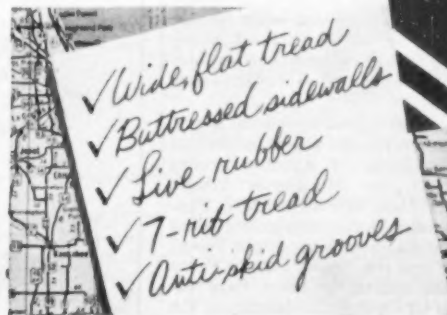 ✓ Wide, flat tread
✓ Buttressed sidewalls
✓ Live rubber
✓ 7-rib tread
✓ Anti-skid grooves